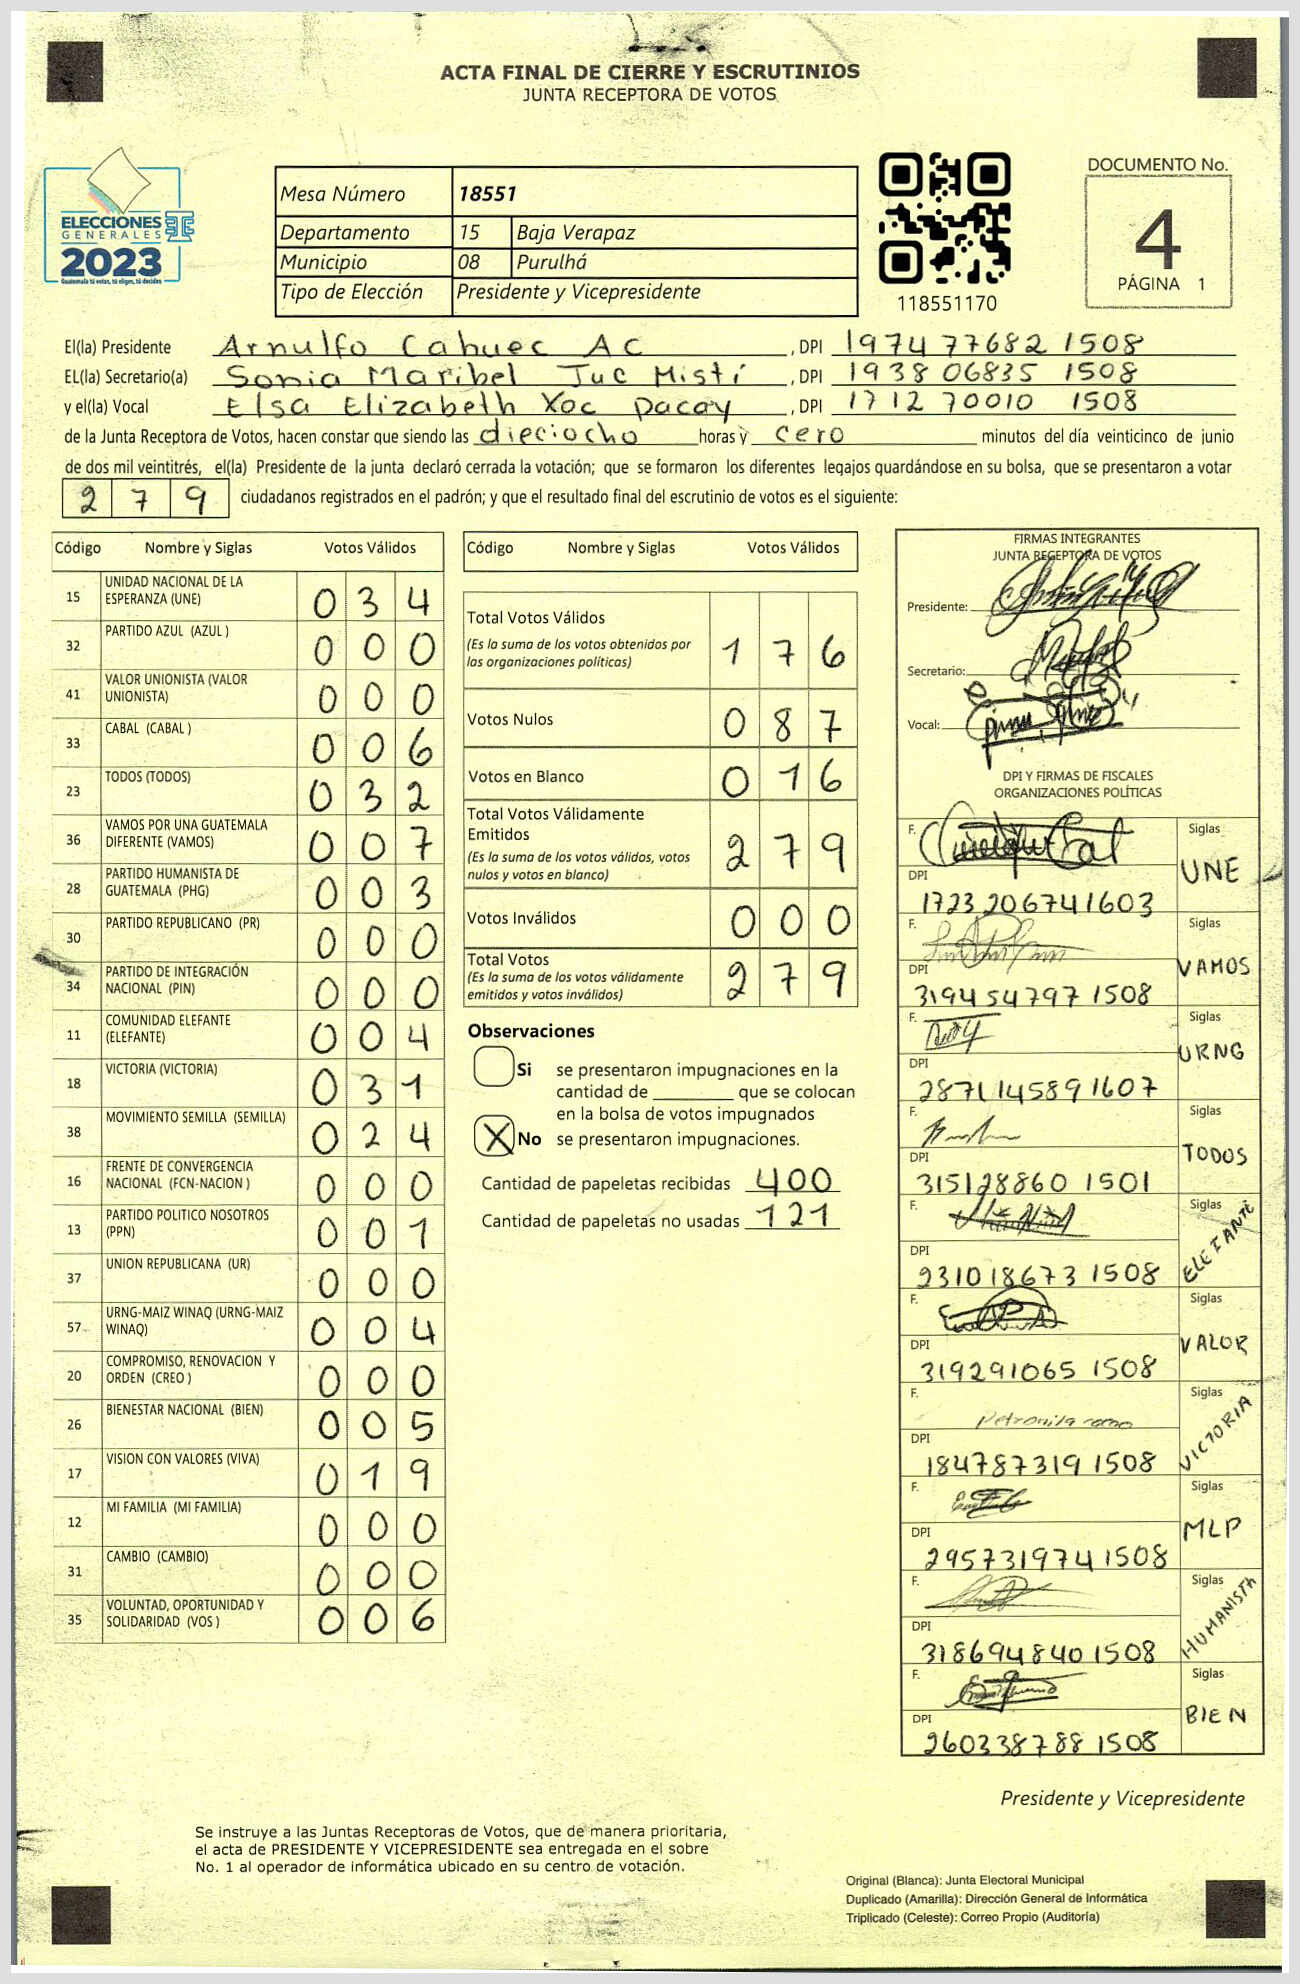 ACTA FINAL DE CIERRE Y ESCRUTINIOS
JUNTA RECEPTORA DE VOTOS
ELECCIONES
GENERALES
2023
Guatemala tú votas, tú eliges, tú decides
Mesa Número 18551
Departamento 15 Baja Verapaz
Municipio 08 Purulhá
Tipo de Elección Presidente y Vicepresidente
118551170
DOCUMENTO No.
4
PÁGINA 1
El(la) Presidente Arnulfo Cahuec AC , DPI 1974 77682 1508
EL(la) Secretario(a) Sonia Maribel Tuc Misti , DPI 1938 06835 1508
y el(la) Vocal Elsa Elizabeth Xoc Pacay , DPI 1712 70010 1508
de la Junta Receptora de Votos, hacen constar que siendo las dieciocho horas y cero minutos del día veinticinco de junio
de dos mil veintitrés, el(la) Presidente de la junta declaró cerrada la votación; que se formaron los diferentes legajos guardándose en su bolsa, que se presentaron a votar
279 ciudadanos registrados en el padrón; y que el resultado final del escrutinio de votos es el siguiente:
Código Nombre y Siglas Votos Válidos
15 UNIDAD NACIONAL DE LA ESPERANZA (UNE) 034
32 PARTIDO AZUL (AZUL ) 000
41 VALOR UNIONISTA (VALOR UNIONISTA) 000
33 CABAL (CABAL ) 006
23 TODOS (TODOS) 032
36 VAMOS POR UNA GUATEMALA DIFERENTE (VAMOS) 007
28 PARTIDO HUMANISTA DE GUATEMALA (PHG) 003
30 PARTIDO REPUBLICANO (PR) 000
34 PARTIDO DE INTEGRACIÓN NACIONAL (PIN) 000
11 COMUNIDAD ELEFANTE (ELEFANTE) 004
18 VICTORIA (VICTORIA) 031
38 MOVIMIENTO SEMILLA (SEMILLA) 024
16 FRENTE DE CONVERGENCIA NACIONAL (FCN-NACION ) 000
13 PARTIDO POLITICO NOSOTROS (PPN) 001
37 UNION REPUBLICANA (UR) 000
57 URNG-MAIZ WINAQ (URNG-MAIZ WINAQ) 004
20 COMPROMISO, RENOVACION Y ORDEN (CREO ) 000
26 BIENESTAR NACIONAL (BIEN) 005
17 VISION CON VALORES (VIVA) 019
12 MI FAMILIA (MI FAMILIA) 000
31 CAMBIO (CAMBIO) 000
35 VOLUNTAD, OPORTUNIDAD Y SOLIDARIDAD (VOS ) 006
Código Nombre y Siglas Votos Válidos
Total Votos Válidos
(Es la suma de los votos obtenidos por las organizaciones políticas) 176
Votos Nulos 087
Votos en Blanco 016
Total Votos Válidamente Emitidos
(Es la suma de los votos válidos, votos nulos y votos en blanco) 279
Votos Inválidos 000
Total Votos
(Es la suma de los votos válidamente emitidos y votos inválidos) 279
Observaciones
Si se presentaron impugnaciones en la
cantidad de que se colocan
en la bolsa de votos impugnados
X No se presentaron impugnaciones.
Cantidad de papeletas recibidas 400
Cantidad de papeletas no usadas 121
FIRMAS INTEGRANTES
JUNTA RECEPTORA DE VOTOS
Presidente:
Secretario:
Vocal:
DPI Y FIRMAS DE FISCALES
ORGANIZACIONES POLÍTICAS
F. Siglas UNE
DPI 1723 20674 1603
F. Siglas VAMOS
DPI 3194 54797 1508
F. Siglas URNG
DPI 2871 14589 1607
F. Siglas TODOS
DPI 3151 28860 1501
F. Siglas ELEFANTE
DPI 2310 18673 1508
F. Siglas VALOR
DPI 3192 91065 1508
F. Petronila Siglas VICTORIA
DPI 1847 87319 1508
F. Siglas MLP
DPI 2957 31974 1508
F. Siglas HUMANISTA
DPI 3186 94840 1508
F. Siglas BIEN
DPI 2603 38788 1508
Presidente y Vicepresidente
Se instruye a las Juntas Receptoras de Votos, que de manera prioritaria,
el acta de PRESIDENTE Y VICEPRESIDENTE sea entregada en el sobre
No. 1 al operador de informática ubicado en su centro de votación.
Original (Blanca): Junta Electoral Municipal
Duplicado (Amarilla): Dirección General de Informática
Triplicado (Celeste): Correo Propio (Auditoría)